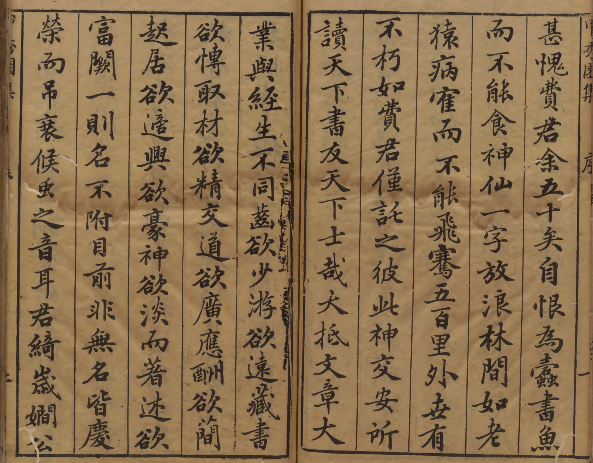 甚愧費君余五十矣自恨為蠹書魚
而不能食神仙一字放浪林間如老
猿病隺而不能飛騫五百里外垂有
不朽如費君僅託之彼此神交安所
讀天下書友天下士哉大抵文章大
業與經生不同齒欲少游欲遠藏書
欲慱取材欲精交道欲廣應酬欲蕳
起居欲適興欲豪神欲淡而著述欲
富闕一則名不附目前非無名皆慶
榮而吊衰候虫之音耳君綺嵗嫺公